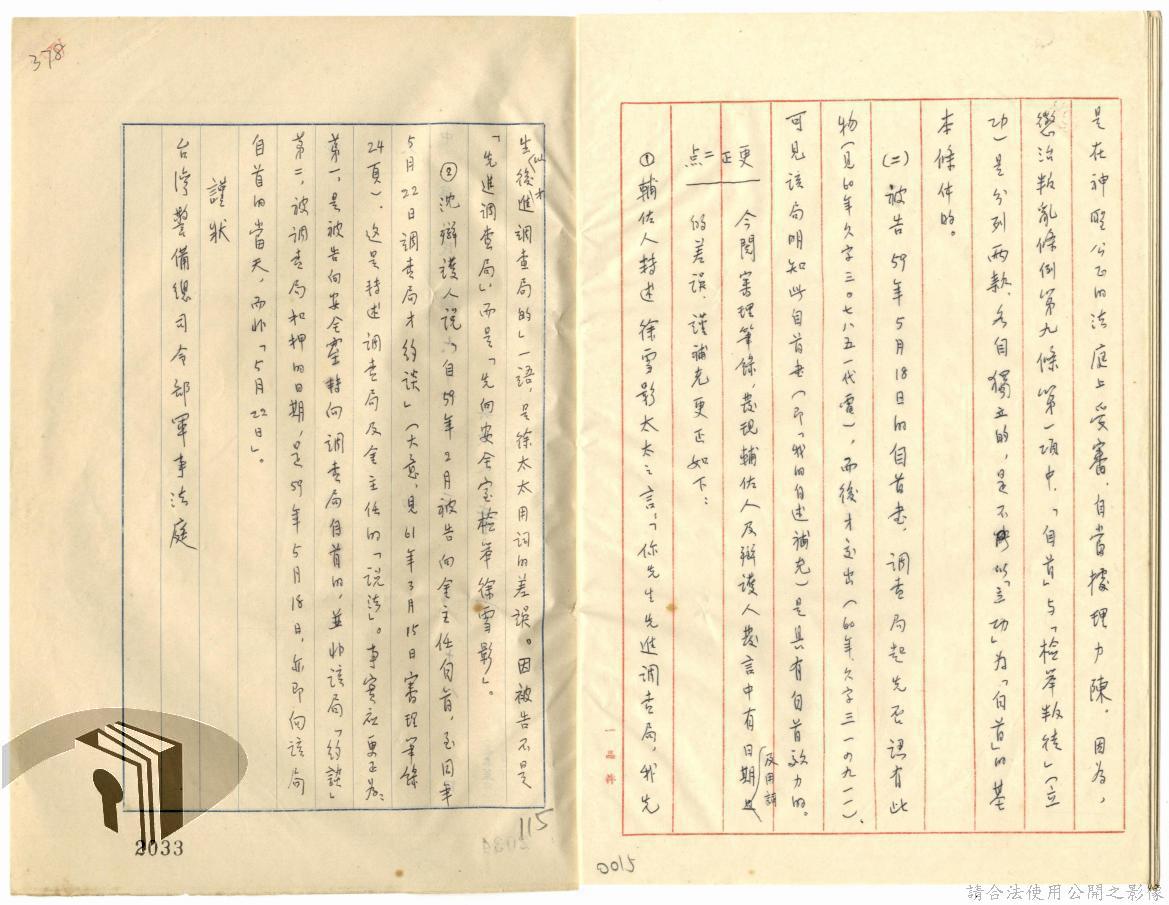 是在神聖公正的法庭上受審,自當據理力陳。因為,
懲治叛亂條例第九條第一項中,「自首」與「檢舉叛徒」(立
功)是分列兩款,各自獨立的,是不以「立功」為「自首」的基
本條件的。
(二)被告59年5月18日的自首書,調查局起先否認有此
物(見60年欠字三〇七八五一代電),而後才交出(60年欠字三一〇九一一),
可見該局明知此自首書(即「我的自述補充」)是具有自首效力的。
更正二点
今閱審理筆錄,發現輔佐人及辯護人發言中有日期及用詞
的差誤,謹補充更正如下:
①輔佐人特述徐雪影太太之言,「你先生先進調查局,我先
生仙後才進調查局的」一語,是徐太太用詞的差誤。因被告不是
「先進調查局」,而是「先向安全室檢舉徐雪影」。
②沈辯護人說:「自59年2月被告向金主任自首,至同年
5月22日調查局才約談」(大意,見61年3月15日審理筆錄
24頁),這是轉述調查局及金主任的「說法」。事實應更正為:
第一,是被告向安全室轉向調查局自首的,並非該局「約談」
第二,被調查局扣押的日期,是59年5月18日,亦即向該局
自首的當天,而非「5月22日」。
謹狀
台灣警備總司令部軍事法庭
378
115
2033
0015
一品齋
請合法使用公開之影像